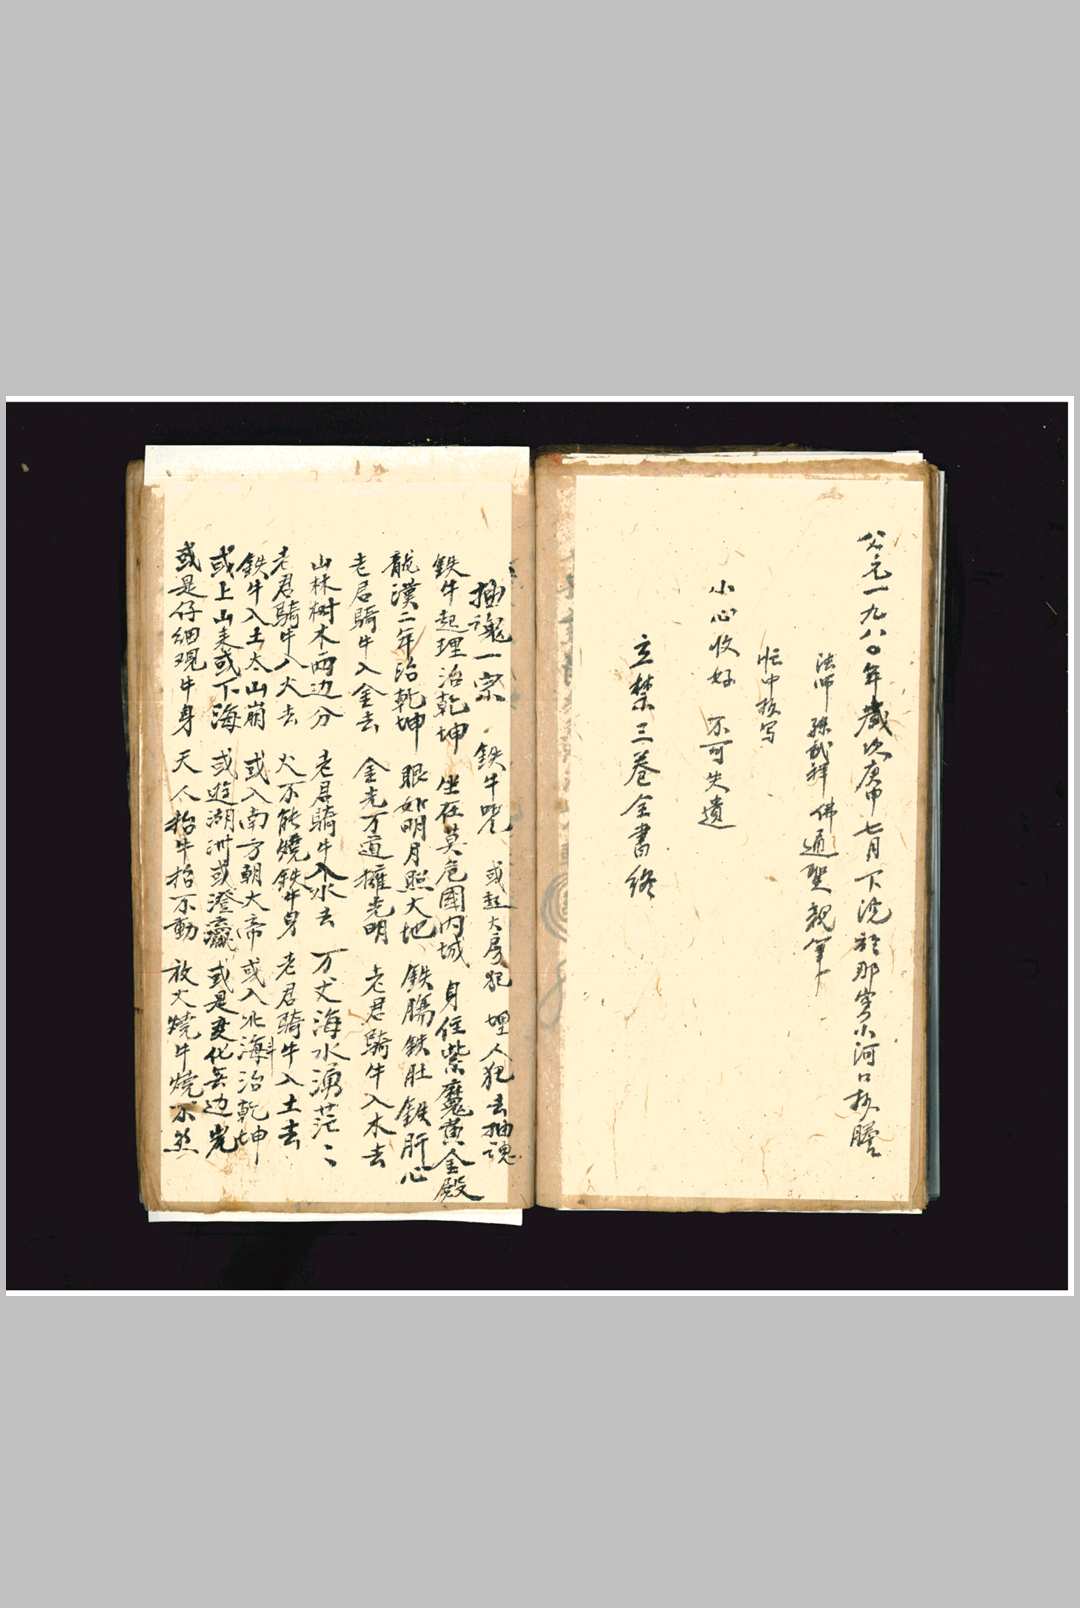 公元一九八〇年歲次庚申七月下浣於那岩小河口抄謄
法師 孫武祥 佛通聖親筆
忙中抄写
小心收好 不可失遺
立禁三卷全書終
抽魂一宗 鉄牛咒 或起大房犯 埋人犯去抽魂
鉄牛起理治乾坤 坐在莫危國内城 身住紫魔黄金殿
龍漢二年治乾坤 眼如明月照大地 鉄腸鉄肚鉄肝心
老君騎牛入金去 金光万道擁光明 老君騎牛入木去
山林树木両边分 老君騎牛入水去 万丈海水湧茫〻
老君騎牛入火去 火不能燒鉄牛身 老君騎牛入土去
鉄牛入土太山崩 或入南方朝大帝 或入北海治乾坤
或上山来或下海 或遊湖州或澄瀛 或是变化無边光
或是仔细观牛身 天人抬牛抬不動 放火燒牛燒不燃